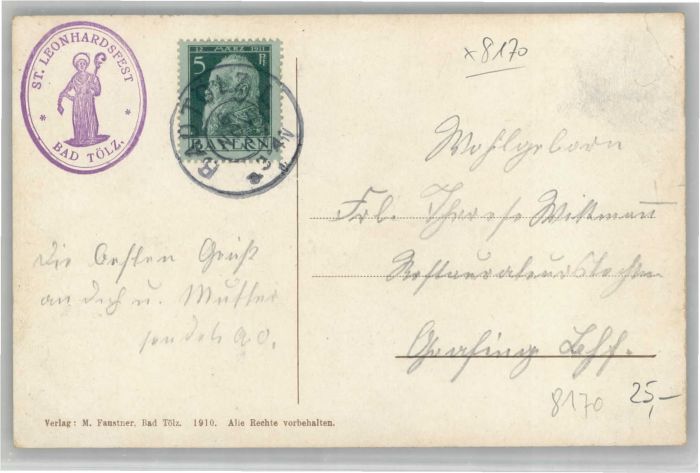 ST. LEONHARDSFEST
* *
BAD TÖLZ.
12. MÄRZ 1911
5 Pf
BAYERN
BAD TÖLZ
x 8170
Wohlgeboren
Frl. Therese Wittmann
Restaurateurstochter
Grafing Bhf.
Die besten Grüße
an dich u. Mutter
sendet
8170
25,-
Verlag: M. Faustner, Bad Tölz. 1910. Alle Rechte vorbehalten.